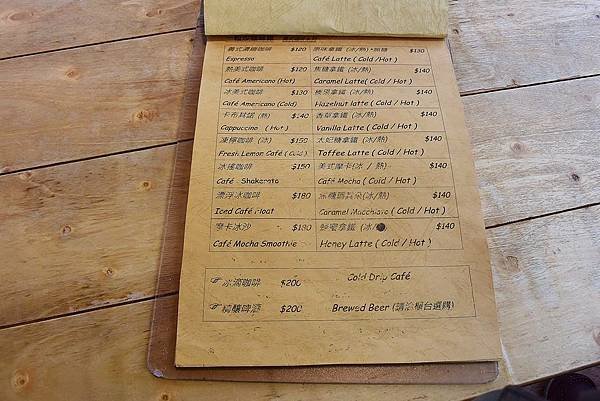 義式濃縮咖啡 $120 原味拿鐵 (冰/熱) $130
Espresso Café Latte ( Cold /Hot )
熱美式咖啡 $120 焦糖拿鐵 (冰/熱) $140
Café Americano (Hot) Caramel Latte( Cold / Hot )
冰美式咖啡 $130 榛果拿鐵 (冰/熱) $140
Café Americano (Cold) Hazelnut latte ( Cold / Hot )
卡布其諾 (熱) $140 香草拿鐵 (冰/熱) $140
Cappuccino ( Hot ) Vanilla Latte ( Cold / Hot )
凍檸咖啡 (冰) $150 太妃糖拿鐵 (冰/熱) $140
Fresh Lemon Café ( Cold ) Toffee Latte ( Cold / Hot )
冰搖咖啡 $150 美式摩卡(冰 / 熱) $140
Café Shakerato Café Mocha ( Cold / Hot )
漂浮冰咖啡 $180 焦糖瑪其朵(冰/熱) $140
Iced Café Float Caramel Macchiato ( Cold / Hot )
摩卡冰沙 $180 蜂蜜拿鐵 (冰/ $140
Café Mocha Smoothie Honey Latte ( Cold / Hot )
☞ 冰滴咖啡 $200 Cold Drip Café
☞ 精釀啤酒 $200 Brewed Beer (請洽櫃台選購)